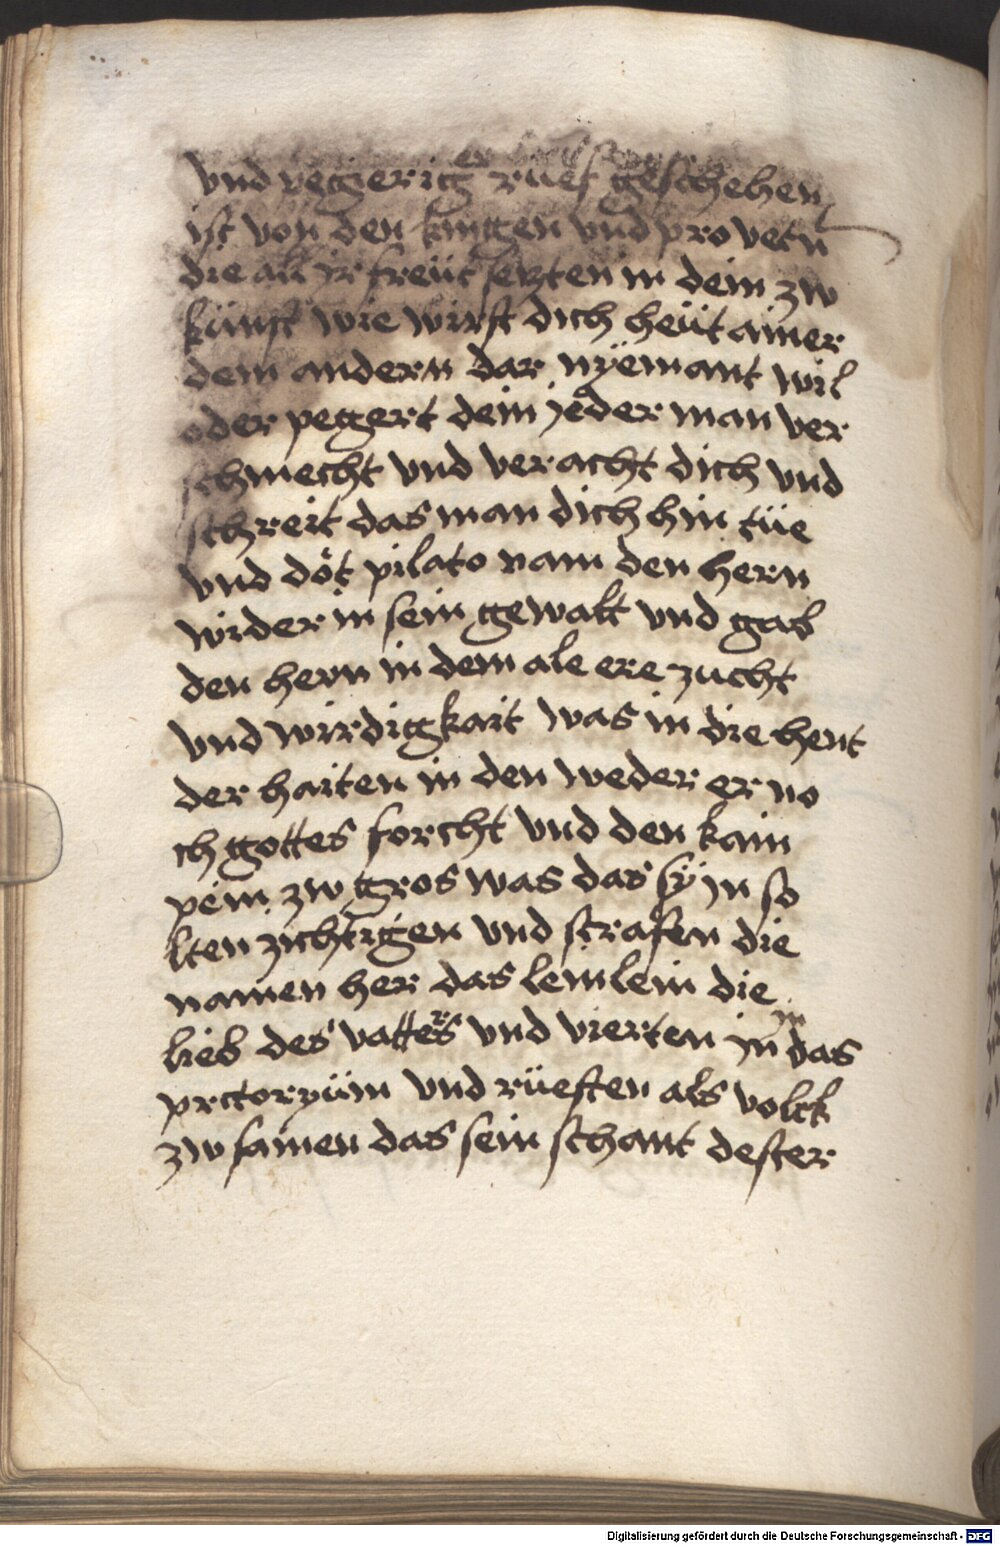 vnd pegierig rüef geschehen
ist von den kungen vnd provetn
die all ir freüt setzten in dein zw
künft wie wirft dich heüt ainer
dem andern dar nyemant wil
oder pegert dein yeder man ver
schmecht vnd veracht dich vnd
schreit das man dich hin tüe
vnd döt pilato nam den hern
wider in sein gewalt vnd gab
den hern in dem ale ere zucht
vnd wirdigkait was in die hent
der haiten in den weder er no
ch gottes forcht vnd den kain
pein zw gros was das sy in so
lten zichtigen vnd strafen die
namen her das lemlein die
lieb des vatters vnd vierten in in das
pretoryüm vnd rüeften als volck
zw samen das sein schant dester
Digitalisierung gefördert durch die Deutsche Forschungsgemeinschaft - DFG